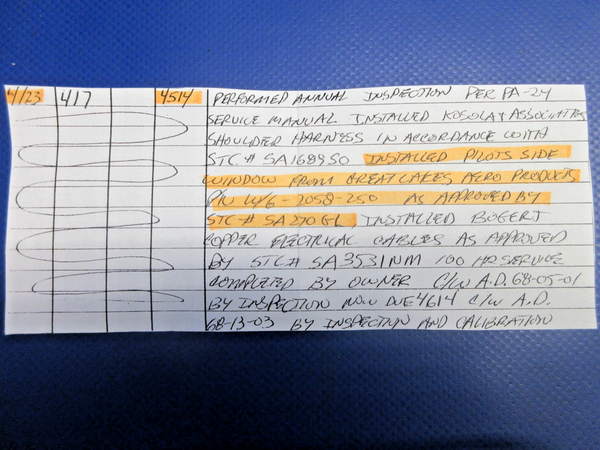 4/23 417 4514 PERFORMED ANNUAL INSPECTION PER PA-24
SERVICE MANUAL INSTALLED KOSOLA & ASSOCIATES
SHOULDER HARNESS IN ACCORDANCE WITH
STC # SA1689SO INSTALLED PILOTS SIDE
WINDOW FROM GREAT LAKES AERO PRODUCTS
P/N W/6-2058-250 AS APPROVED BY
STC # SA270GL, INSTALLED BOGERT
COPPER ELECTRICAL CABLES AS APPROVED
BY STC# SA3531NM 100 HR SERVICE
COMPLETED BY OWNER C/W A.D. 68-05-01
BY INSPECTION NOW DUE 4614 C/W A.D.
68-13-03 BY INSPECTION AND CALIBRATION